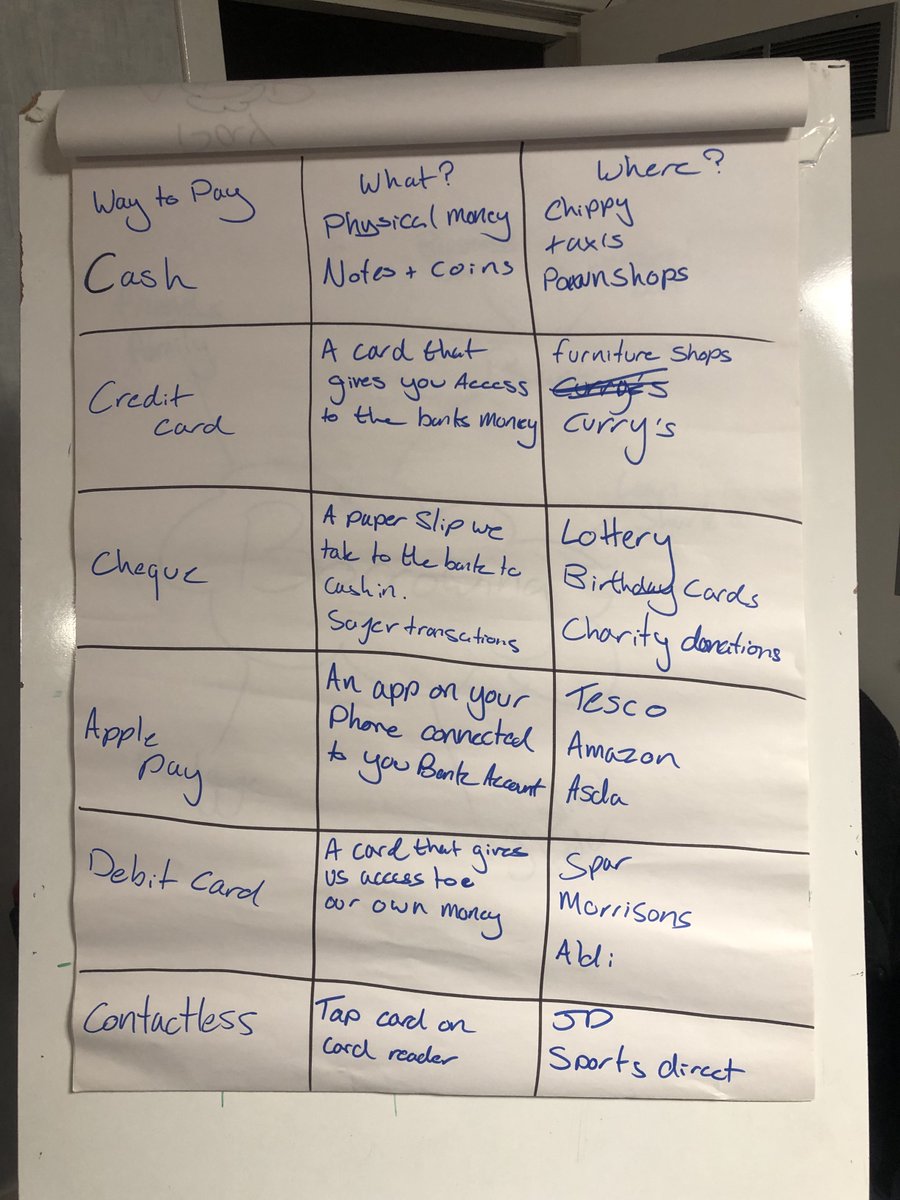 Way to Pay
What?
Where?
Cash
Physical money
Notes + coins
Chippy
taxis
Pawnshops
Credit
card
A card that
gives you Access
to the banks money
furniture shops
Curry's
Curry's
Cheque
A paper slip we
take to the bank to
cash in.
Safer transations
Lottery
Birthday Cards
Charity donations
Apple
pay
An app on your
Phone connected
to you Bank Account
Tesco
Amazon
Asda
Debit Card
A card that gives
us access to
our own money
Spar
Morrisons
Aldi
Contactless
Tap card on
card reader
JD
Sports direct